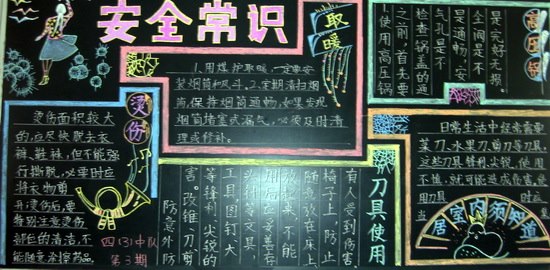 安全常识
取暖
1.用煤炉取暖,一定要安
装烟筒和风斗。2.定期清扫烟
筒,保持烟筒通畅,如果发现
烟筒堵塞或漏气,必须及时清
理或修补。
高压锅
1.使用高压锅
之前,首先要
检查锅盖的通
气孔是不
是通畅,安
全阀是不
是完好无损。
烫伤
烫伤面积较大
的,应尽快脱去衣
裤、鞋袜,但不能强
行撕脱,必要时应
将衣物剪
开;烫伤后,要
特别注意烫伤
部位的清洁,不
能随意涂擦药品
四(3)中队
第3期
刀具使用
有人受到伤害。
椅子上,防止
随意放在床上
放起来,不能
用后应妥善存
头行等文具,
工具图钉大
等锋利、尖锐的
害。改锥、刀剪
防意外伤
日常生活中经常需要
菜刀、水果刀、剪刀等刀具,
这些刀具锋利、尖锐,使用
不慎,就可能造成伤害,使
用刀具 时应
居室内须知道